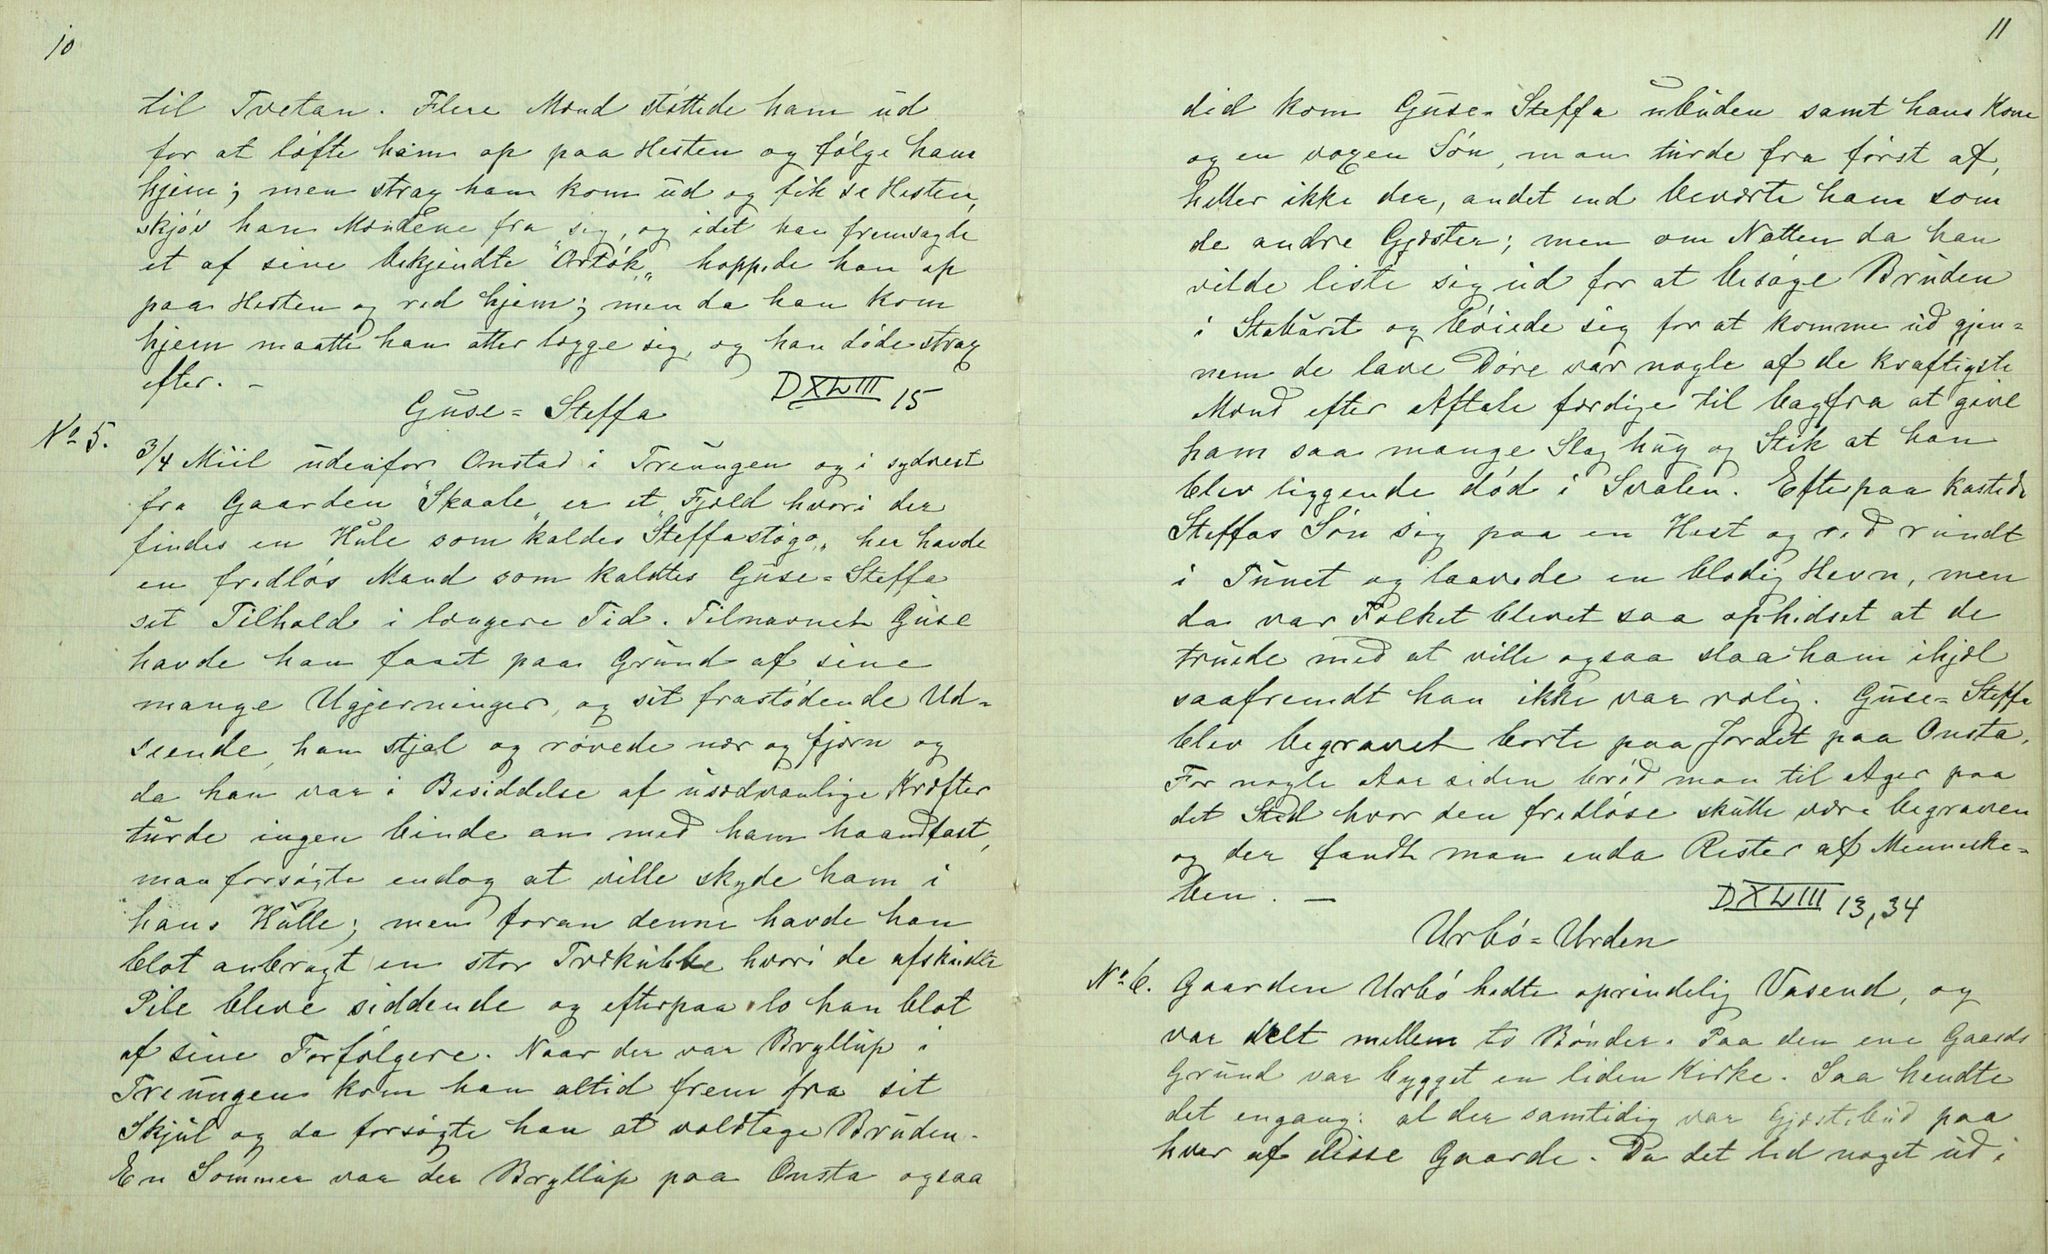 10
til Tvetan. Flere Mænd støttede ham ud
for at løfte ham op paa Hesten og følge ham
hjem; men strax han kom ud og fik se Hesten,
skjøv han Mændene fra sig, og idet han fremsagde
et af sine bekjendte "Ortøk", hoppede han op
paa Hesten og red hjem; men da han kom
hjem maatte han atter lægge sig, og han døde strax
efter. –
DXLIII 15
Guse=Steffa
No 5.
3/4 Miil udenfor Onstad i Treungen og i sydvest
fra Gaarden "Skaale" er et Fjeld hvori der
findes en Hule som kaldes "Steffastøgo", her havde
en fredløs Mand som kaldtes Guse=Steffa
sit Tilhold i længere Tid. Tilnavnet Guse
havde han faaet paa Grund af sine
mange Ugjerninger, og sit frastødende Ud=
seende, han stjal og røvede nær og fjern og
da han var i Besiddelse af usædvanlige Kræfter
turde ingen binde an med ham haandfast,
man forsøgte endog at ville skyde ham i
hans Hule; men foran denne havde han
blot anbragt en stor Trækubbe hvori de afskudte
Pile bleve siddende og efterpaa lo han blot
af sine Forfølgere. Naar der var Bryllup i
Treungen kom han altid frem fra sit
Skjul og da forsøgte han at voldtage Bruden.
En Sommer var der Bryllup paa Onsta ogsaa
11
did kom Guse=Steffa ubuden samt hans Kone
og en voxen Søn, man turde fra først af,
heller ikke der, andet end beværte ham som
de andre Gjæster; men om Natten da han
vilde liste sig ud for at besøge Bruden
i Staburet og bøiede sig for at komme ud gjen=
nem de lave Døre var nogle af de kraftigste
Mænd efter Aftale færdige til bagfra at give
ham saa mange Slag hug og Stik at han
blev liggende død i Svalen. Efterpaa kastede
Steffas Søn sig paa en Hest og red rundt
i Tunet og laavede en blodig Hevn, men
da var Folket blevet saa ophidset at de
truede med at ville ogsaa slaa ham ihjel
saafremdt han ikke var rolig. Guse=Steffa
blev begravet borte paa Jordet paa Onsta.
For nogle Aar siden brød man til Ager paa
det Sted hvor den fredløse skulle være begraven
og der fandt man enda Rester af Menneske=
ben. –
DXLIII 13, 34
Urbø=Urden
No 6.
Gaarden Urbø hedte oprindelig Vasend, og
var delt mellem to Bønder. Paa den ene Gaards
Grund var bygget en liden Kirke. Saa hendte
det engang: at der samtidig var Gjæstebud paa
hver af disse Gaarde. Da det led noget ud i